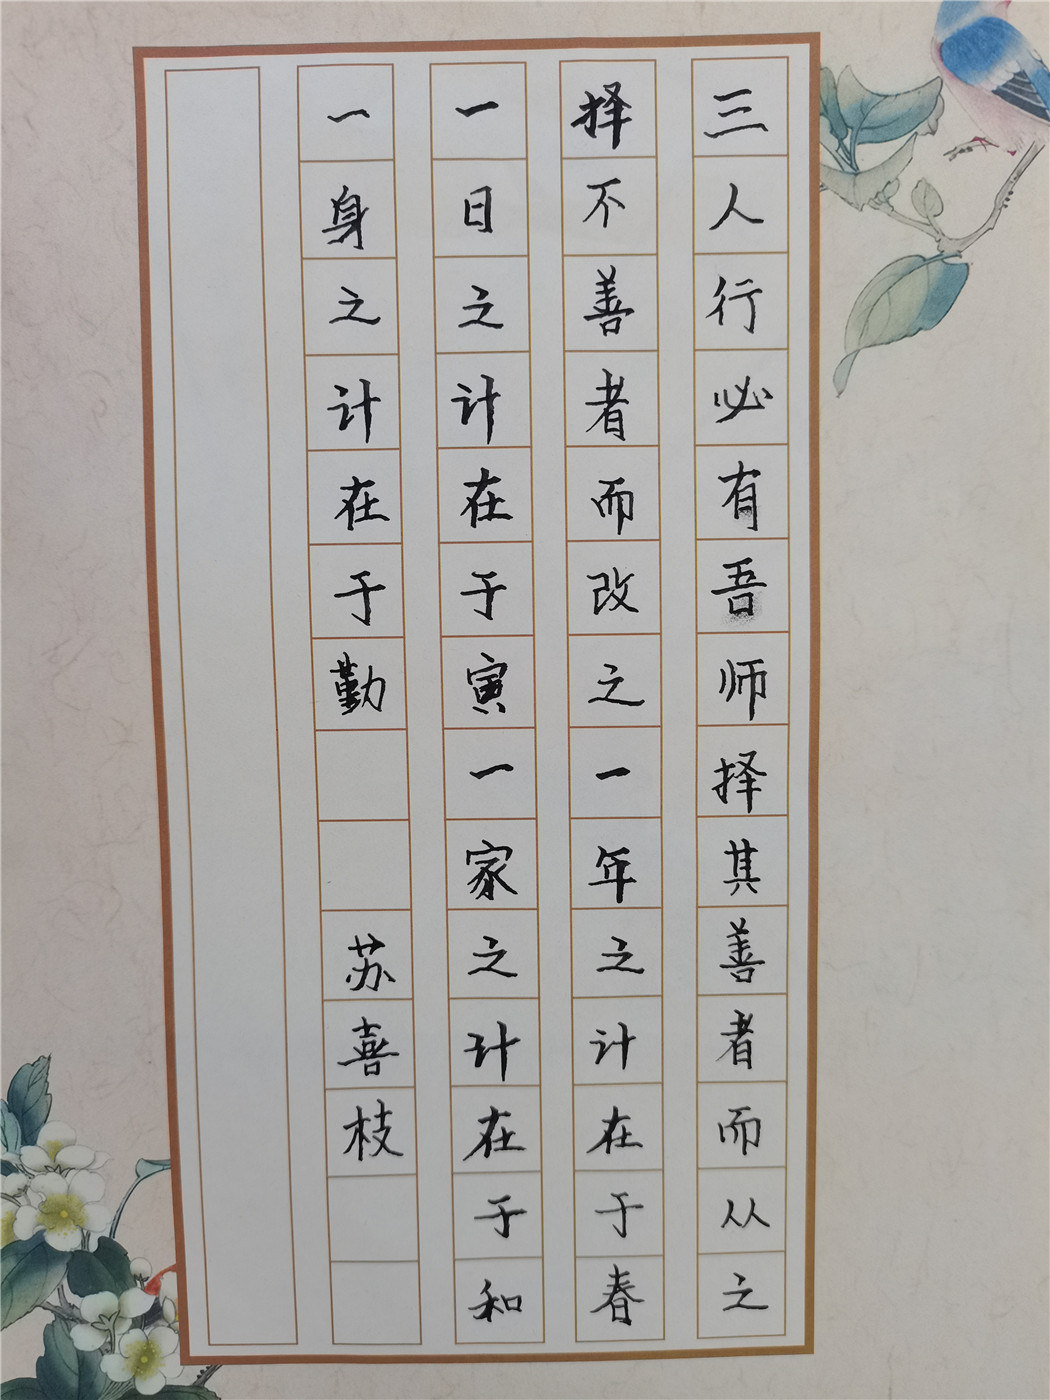 三人行必有吾师择其善者而从之
择不善者而改之一年之计在于春
一日之计在于寅一家之计在于和
一身之计在于勤
苏喜枝